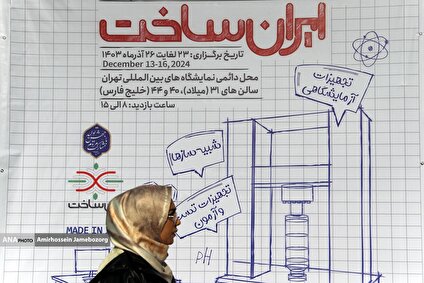 ایران ساخت
تاریخ برگزاری: ۲۳ لغایت ۲۶ آذرماه ۱۴۰۳
December 13-16, 2024
محل دائمی نمایشگاه های بین المللی تهران
سالن های ۳۱ (میلاد)، ۴۰ و ۴۴ (خلیج فارس)
ساعت بازدید: ۸ الی ۱۵
تجهیزات
آزمایشگاهی
شبیه سازها
تجهیزات تست
و آزمون
ساخت
MADE IN
PH
ANA PHOTO Amirhossein Jamebozorg